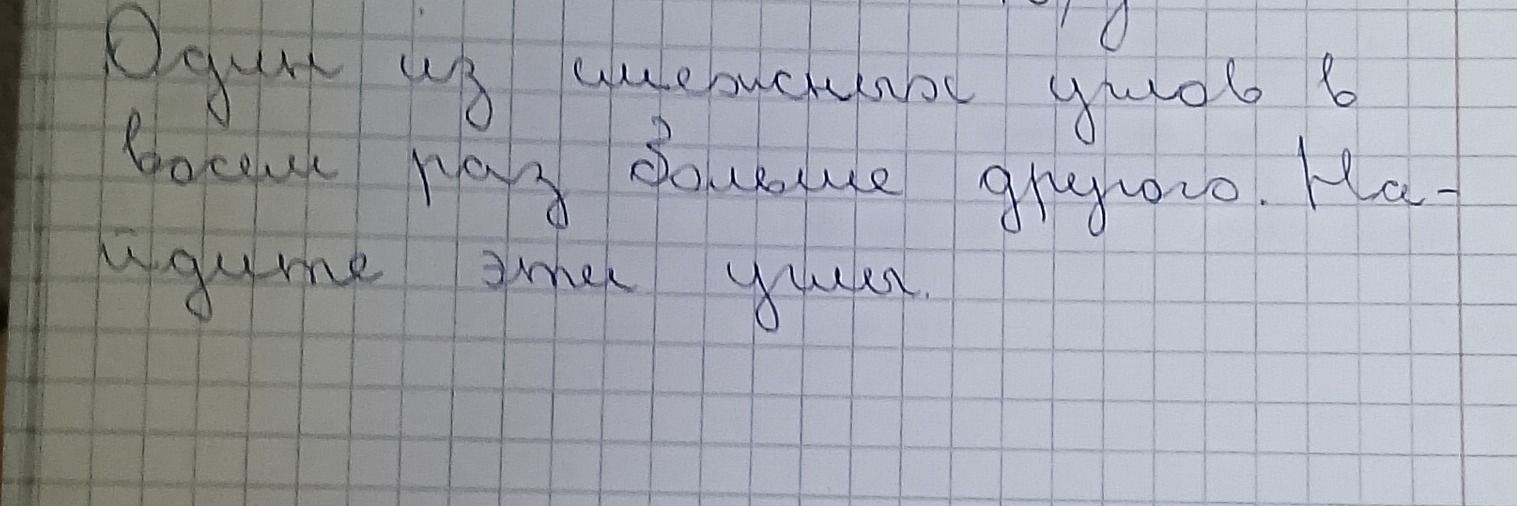 Один из смежных углов в
восем раз больше другого. На-
йдите эти углы.